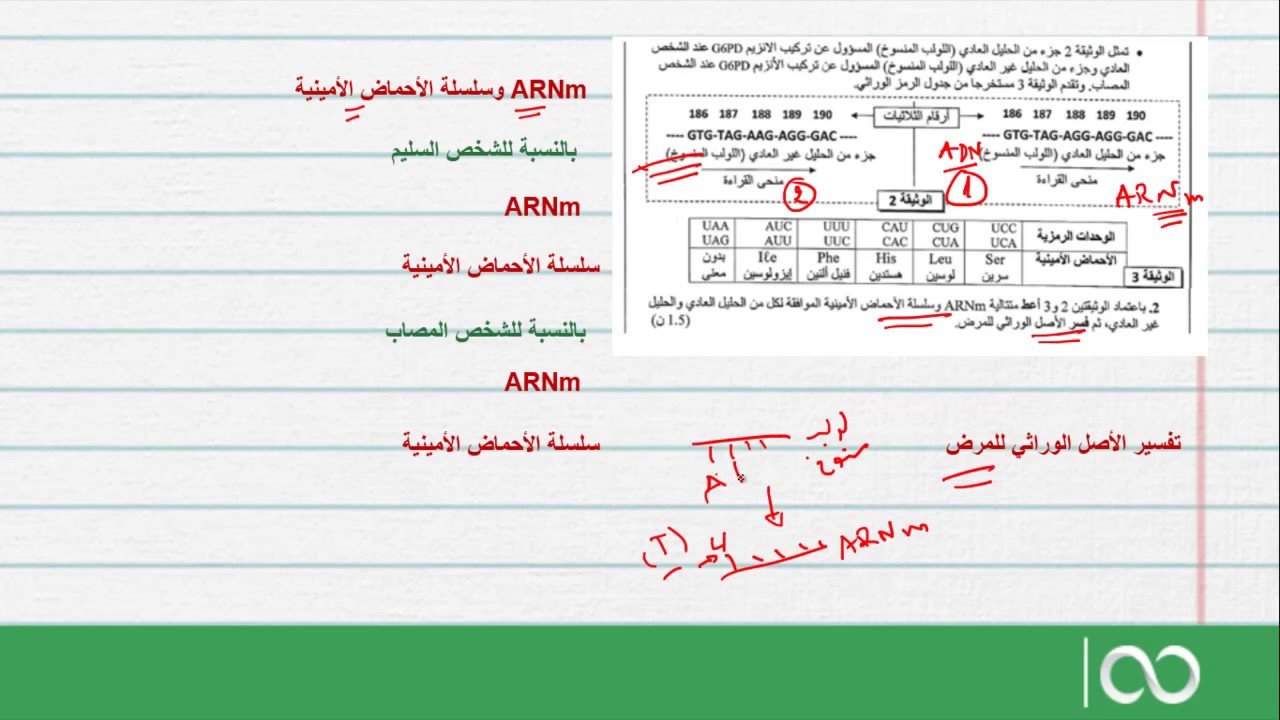 • تمثل الوثيقة 2 جزء من الحليل العادي (اللولب المنسوخ) المسؤول عن تركيب الانزيم G6PD عند الشخص
العادي وجزء من الحليل غير العادي (اللولب المنسوخ) المسؤول عن تركيب الأنزيم G6PD عند الشخص
المصاب. وتقدم الوثيقة 3 مستخرجا من جدول الرمز الوراثي.
186 187 188 189 190
أرقام الثلاثيات
186 187 188 189 190
---- GTG-TAG-AGG-AGG-GAC ----
---- GTG-TAG-AAG-AGG-GAC ----
جزء من الحليل العادي (اللولب المنسوخ)
ADN
جزء من الحليل غير العادي (اللولب المنسوخ)
منحى القراءة
منحى القراءة
ARNm
1
2
الوثيقة 2
الوحدات الرمزية UCC CUG CAU UUU AUC UAA
UCA CUA CAC UUC AUU UAG
الأحماض الأمينية Ser Leu His Phe Iℓe بدون
سرين لوسين هستدين فنيل ألنين إيزولوسين معنى
الوثيقة 3
2. باعتماد الوثيقتين 2 و3 أعط متتالية ARNm وسلسلة الأحماض الأمينية الموافقة لكل من الحليل العادي والحليل
غير العادي، ثم فسر الأصل الوراثي للمرض. (1.5 ن)
ARNm وسلسلة الأحماض الأمينية
بالنسبة للشخص السليم
ARNm
سلسلة الأحماض الأمينية
بالنسبة للشخص المصاب
ARNm
سلسلة الأحماض الأمينية
تفسير الأصل الوراثي للمرض
لولب
منسوخ
A
(T) U
ARNm